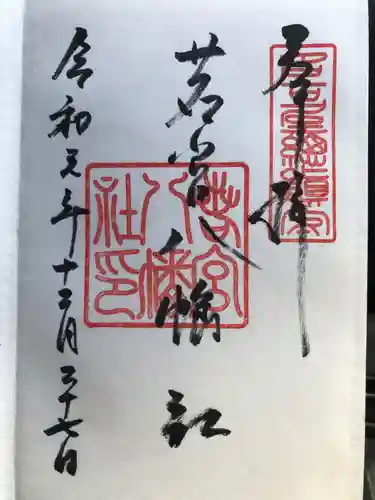 奉拝
若宮八幡社
令和元年十二月二十七日
若宮八幡社印